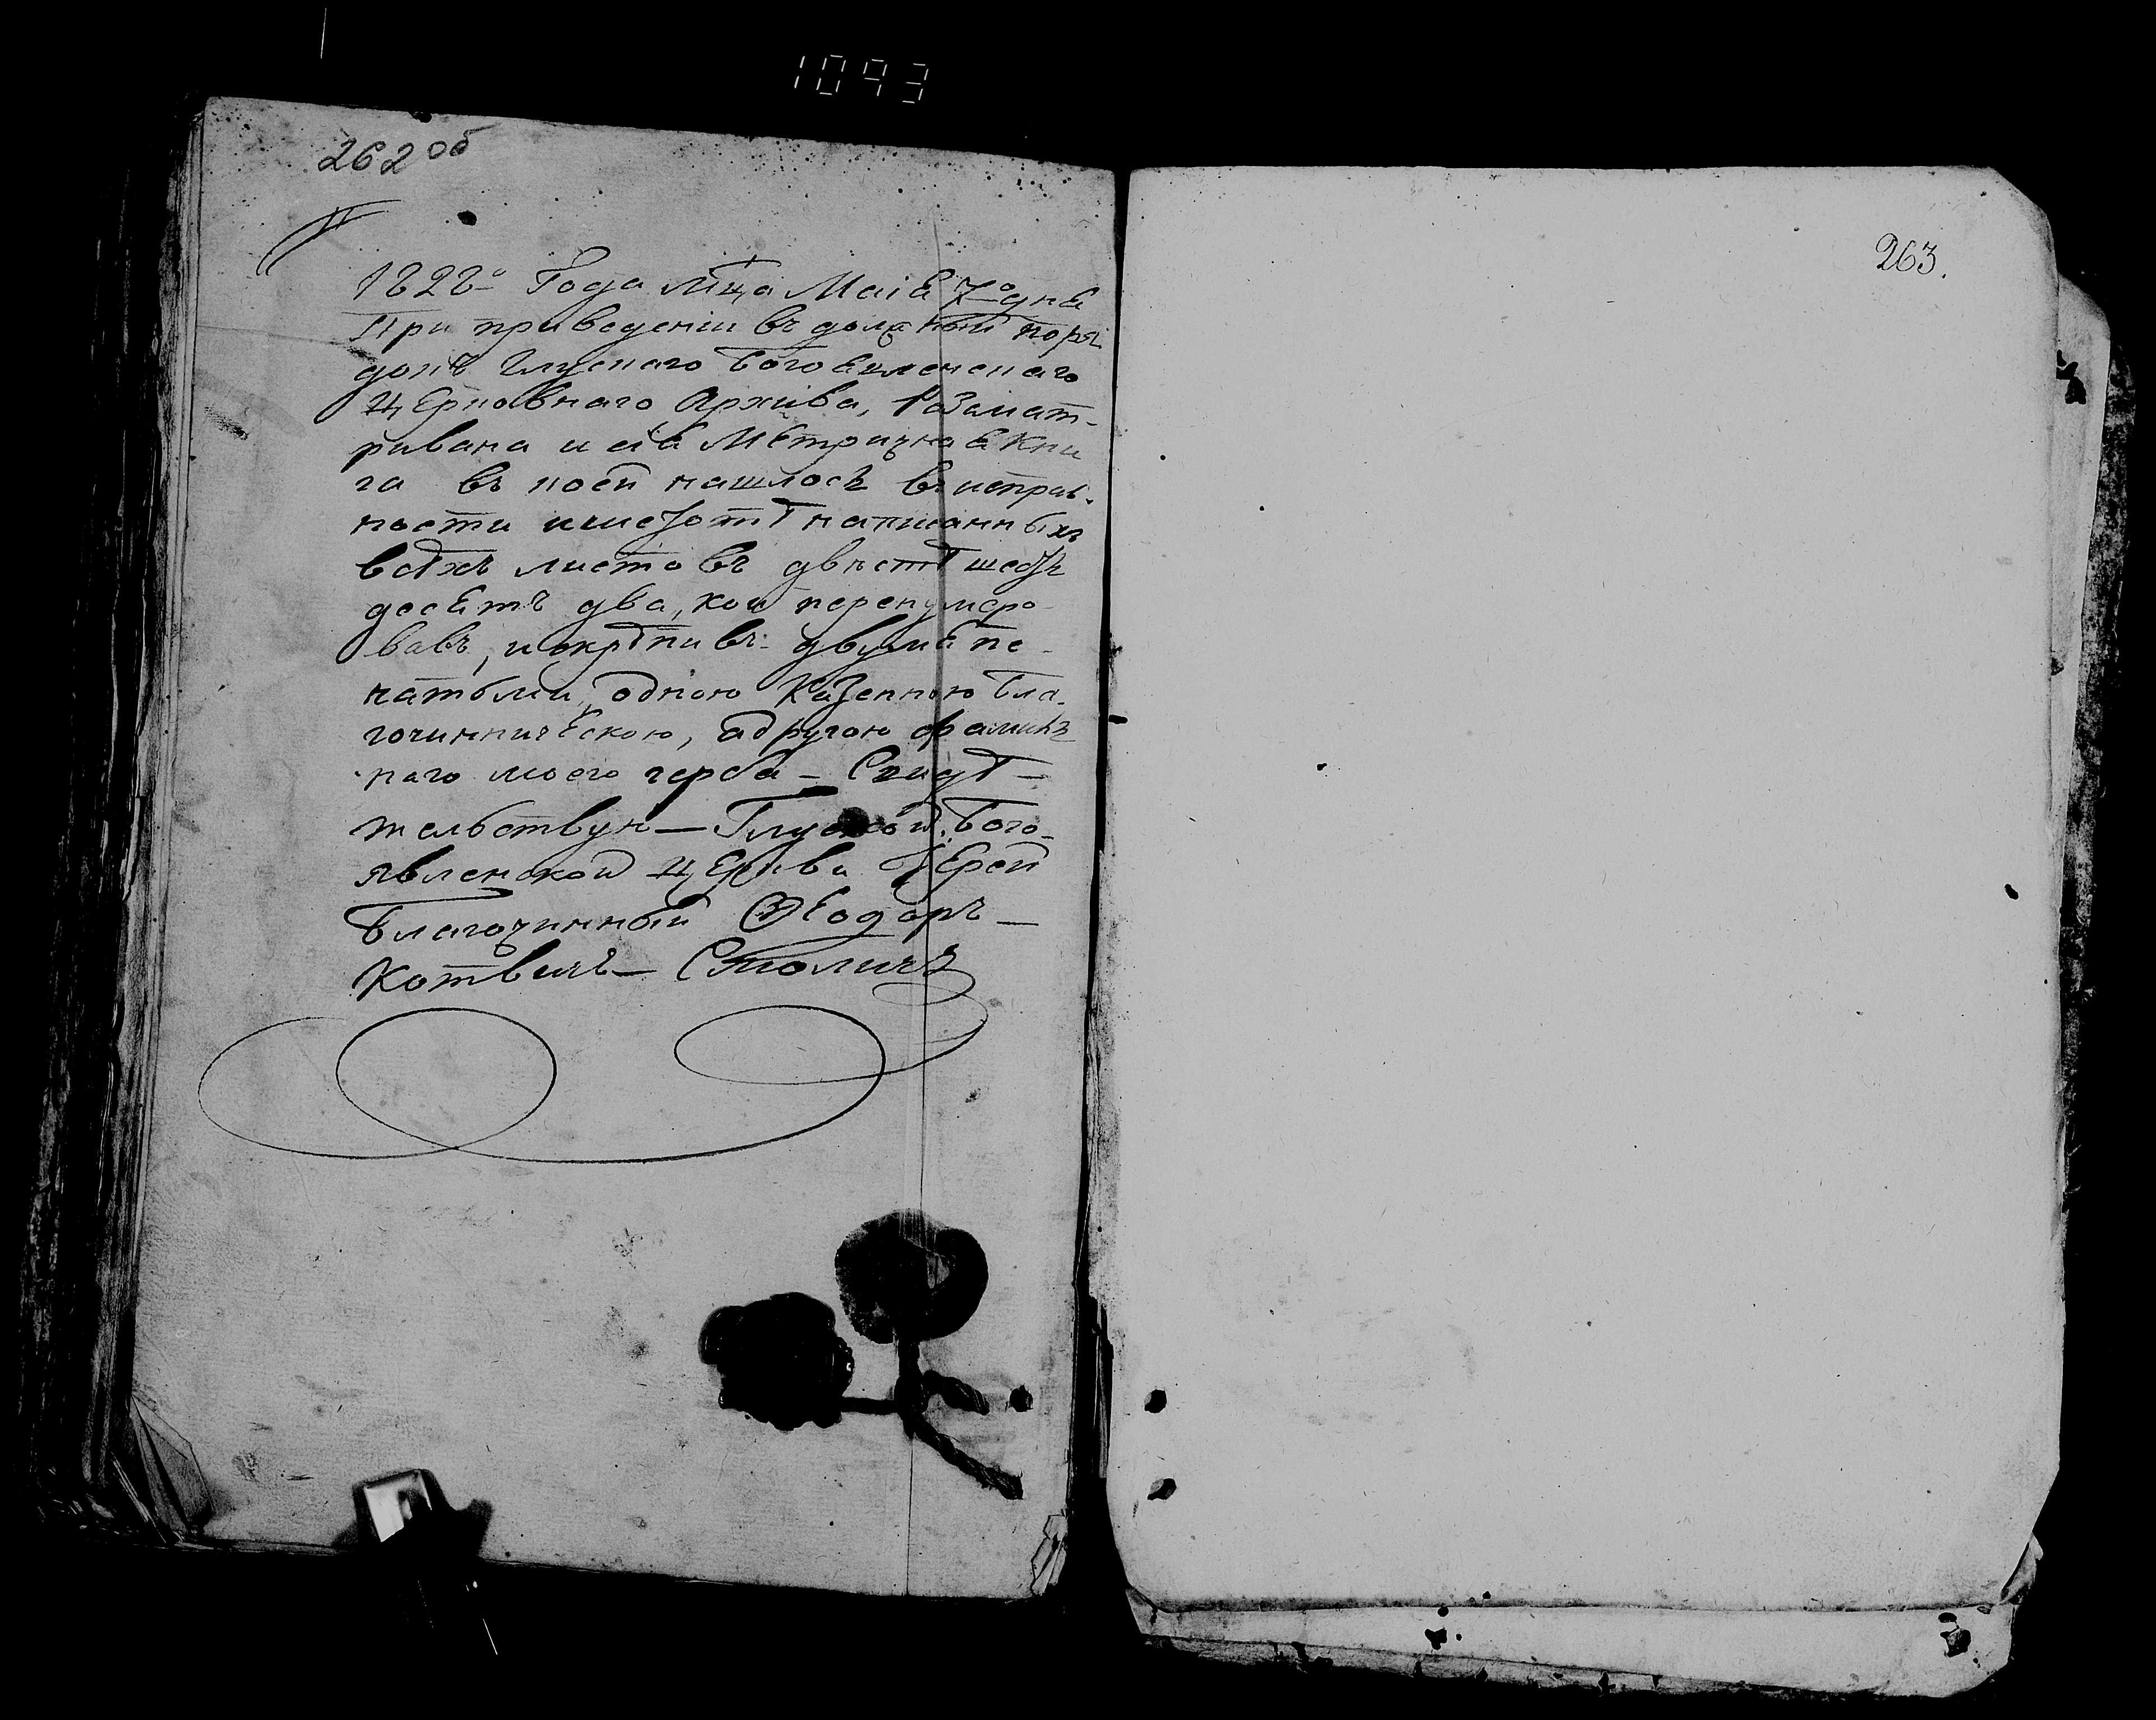 1093
262 об
1828го Года Мца Маія 7го дня
При приведеніи въ должный поря
докъ Глускаго Богоявленскаго
Церковнаго Архива, Разсмат-
ривана и сія Метричная Кни
га въ коей нашлось въ исправ-
ности написанныхъ
всѣхъ листовъ двѣстѣ шесть
десятъ два, кои перенумеро-
вавъ, и скрѣпивъ двумя пе-
чатьми, одною Казенною Бла-
гочинническою, а другою фамиль
наго моего герба – Свидѣ-
тельствую – Глуской Бого-
явленской Церкви Іерей
Благочинный Ѳеодоръ –
Котвичъ –
263.